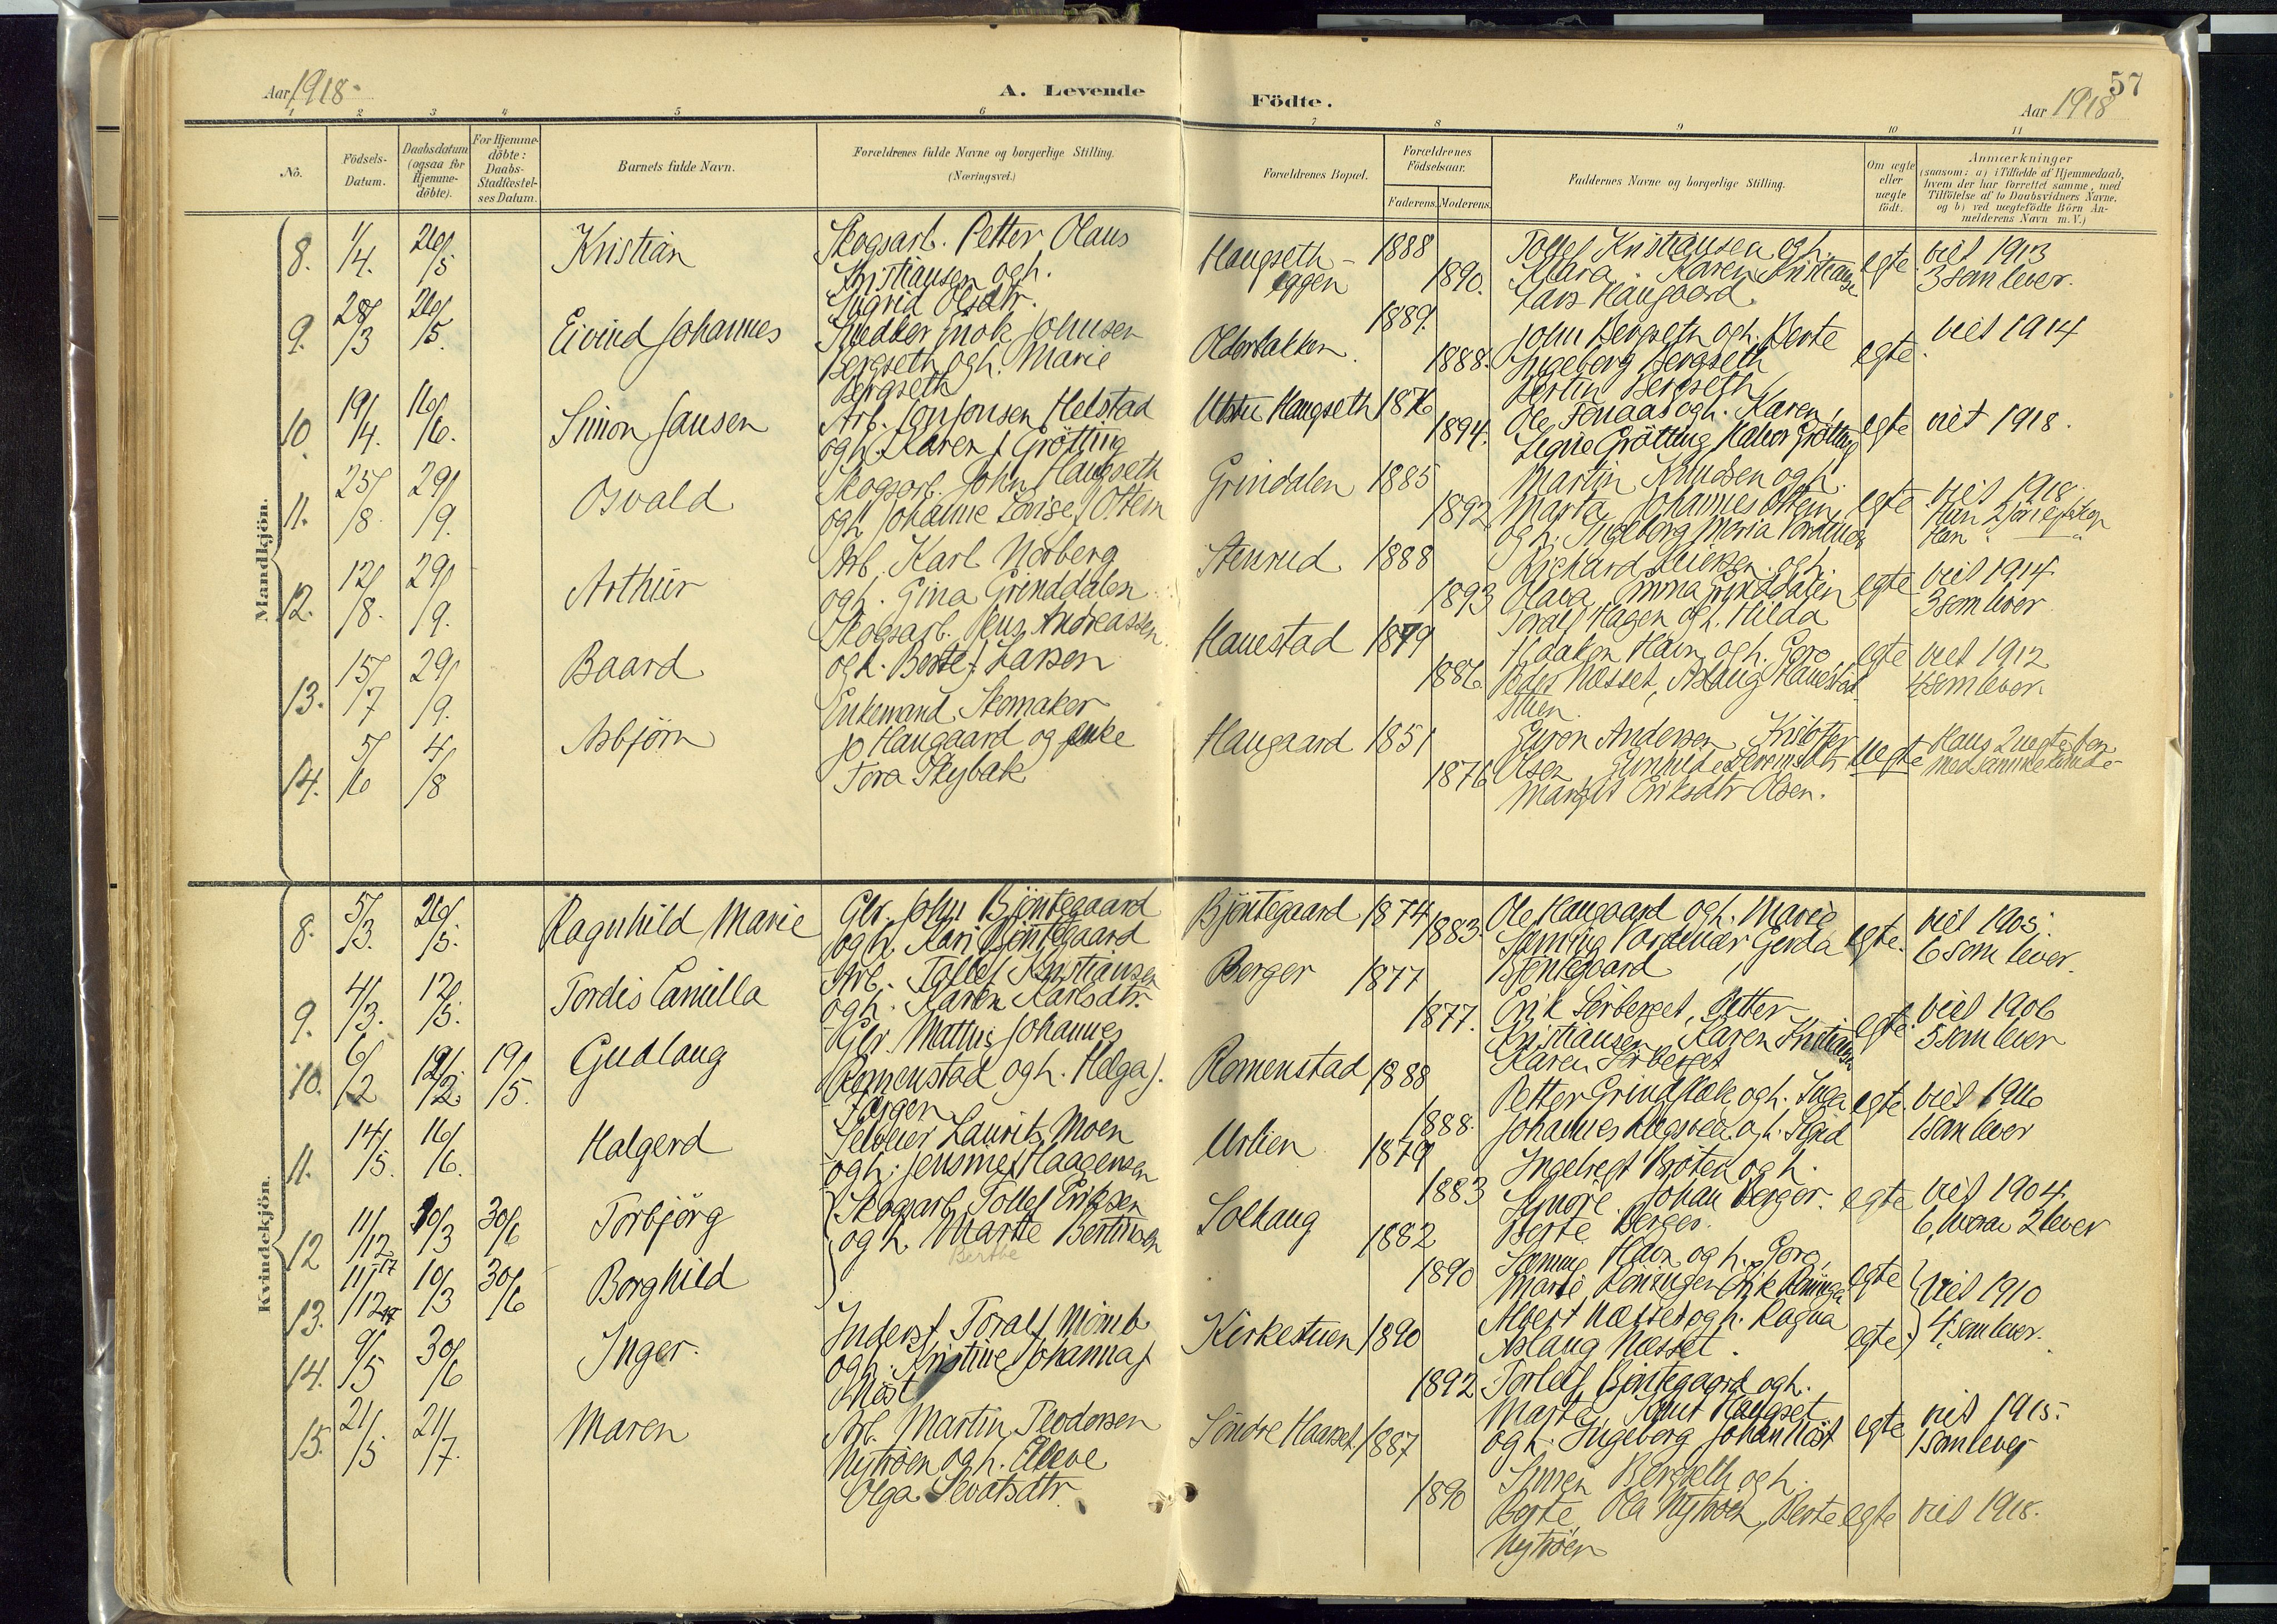 Aar 1918
A. Levende
Födte.
57
Aar 1918
1 2 3 4 5 6 7 8 9 10 11
Nö.
Födsels-Datum.
Daabsdatum (ogsaa for Hjemme-döbte).
For Hjemme-döbte: Daabs-Stadfæstel-ses Datum.
Barnets fulde Navn.
Forældrenes fulde Navne og borgerlige Stilling.
(Næringsvei.)
Forældrenes Bopæl.
Forældrenes Födselsaar.
Faderens. Moderens.
Faddernes Navne og borgerlige Stilling.
Om ægte eller uægte födt.
Anmærkninger
(saasom: a) i Tilfælde af Hjemmedaab,
hvem der har forrettet samme, med
Tilföielse af to Daabsvidners Navne,
og b) ved uægtefödte Börn An-
melderens Navn m. V.)
Mandkjön.
8. 1/4. 20/5 Kristian
Skogsarb. Petter Olaus
Kristiansen og h.
Sigrid Olsdtr.
Haugseth-
eggen
1888
1890.
Tollef Kristiansen og h.
Klara. Karen Kristianse
Lars Haugaard
egte.
viet 1913
3 som lever.
9. 28/3 20/5. Eivind Johannes
Snedker Enok Johnsen
Bergseth og h. Marie
Bergseth
Olderbakken.
1889.
1888.
John Bergseth og h. Berte
Ingeborg Bergseth
Bertin Bergseth
egte.
viet 1914
10. 19/4. 16/6. Simon Jansen
Arb. Jon Jonsen Helstad
og h. Karen f. Grötting
Utstu Haugseth
1876
1894.
Ole Fonaas og h. Karen,
Signe Grötting Halvor Grötting
egte
viet 1918.
11. 25/8. 29/9. Osvald
Skogsarb. John Haugseth
og h. Johanne Lovise f. Ottem
Grindalen
1885
1892
Martin Knudsen og h.
Marta Johannes Ottem
og h. Ingeborg Maria Nordenes
egte
viet 1918.
12. 12/8. 29/9. Arthur
Arb. Karl Norberg
og h. Gina Grinddalen
Stenrud
1888
1893
Richard Eriksen og h.
Olava Emma Grinddalen
Toralf Hagen og h. Hilda
egte
viet 1914.
3 som lever
13. 15/7 29/9. Baard
Skogsarb. Jens Andreassen
og h. Berte f. Larsen
Hanestad
1879
1886.
Haaken Haen og h. Goro
Peder Næsset, Aslaug Hanestad
Stuen
egte
viet 1912
4 som lever.
14. 5/6 4/8 Asbjørn
Enkemand Skomaker
Jo Haugaard og enke
Tora Skybak
Haugaard
1851
1876
Guron Andersen Kristofer
Olsen Gunhild Lorensdtr
Margit Eriksdtr Olsen.
uegte
Hans 2 uegte barn
med samme kvinde
Kvindekjön.
8. 5/3. 20/5. Ragnhild Marie
Gbr. John Bjöntegaard
og h. Kari Bjöntegaard
Bjöntegaard
1874
1883.
Ole Haugaard og h. Marie
Samring Nordenær Gerda
Bjöntegaard
egte.
viet 1903.
6 som lever.
9. 4/3. 12/5. Tordis Camilla
Arb. Tollef Kristiansen
og h. Karen Karlsdtr.
Berger
1877
1877.
Erik Sörberget, Petter
Kristiansen Karen Kristianse
Karen Sörberget
egte.
viet 1906
5 som lever
10. 6/2 12/2. 19/5. Gudlaug
Gbr. Mattis Johannes
Romenstad og h. Helga f.
Jörgen
Romenstad
1888
1888.
Petter Grindflæk og h. Inga
Johannes og h. Sigrid
egte.
viet 1916
1 som lever
11. 14/5. 16/6. Halgerd
Selveier Laurits Moen
og h. Jensine f. Haagensen
Urlien
1879
1883
Ingebregt Bröten og h.
Signore. Johan Berger.
Berte Berger.
egte
viet 1904.
6, hvorav 2 lever
12 11/12 17 10/3 30/6 Torbjörg
Skogsarb. Tollef Eriksen
og h. Marte Bertinsen
Berthe
Solhaug
1882
1890
Samme Haen og h. Gora,
Marie Löningen Erik Löningen
egte
viet 1910
4 som lever.
13. 11/12 17 10/3 30/6 Borghild
Albert Næsset og h. Ragna
Aslaug Næsset.
egte.
14. 9/5 30/6 Inger.
Inderst Toralf
og h. Kristine Johanna f.
Möst
Kirkestuen
1890
1892
Torleif Bjöntegaard og h.
Marta, Knut Haugset
og h. Ingeborg Johan Möst
egte
viet 1915.
1 som lever
15. 21/5 21/7. Maren
Arb. Martin Pedersen
Nytröen og h.
Olga Sivatsdtr.
Söndre Haarset
1887
1890
Simen Bergseth og h.
Berte, Ola Nytröen, Berte
Nytröen
egte
viet 1918.